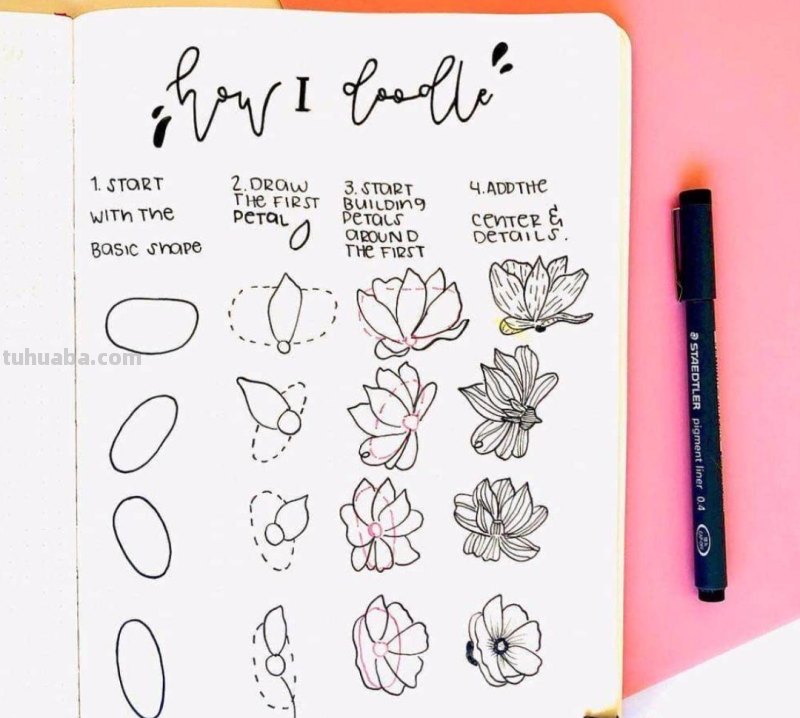 how I doodle
1. START
WITH THE
BASIC SHAPE
2. DRAW
THE FIRST
PETAL
3. START
BUILDING
PETALS
AROUND
THE FIRST
4. ADD THE
CENTER &
DETAILS.
tuhuaba.com
STAEDTLER pigment liner 0.4